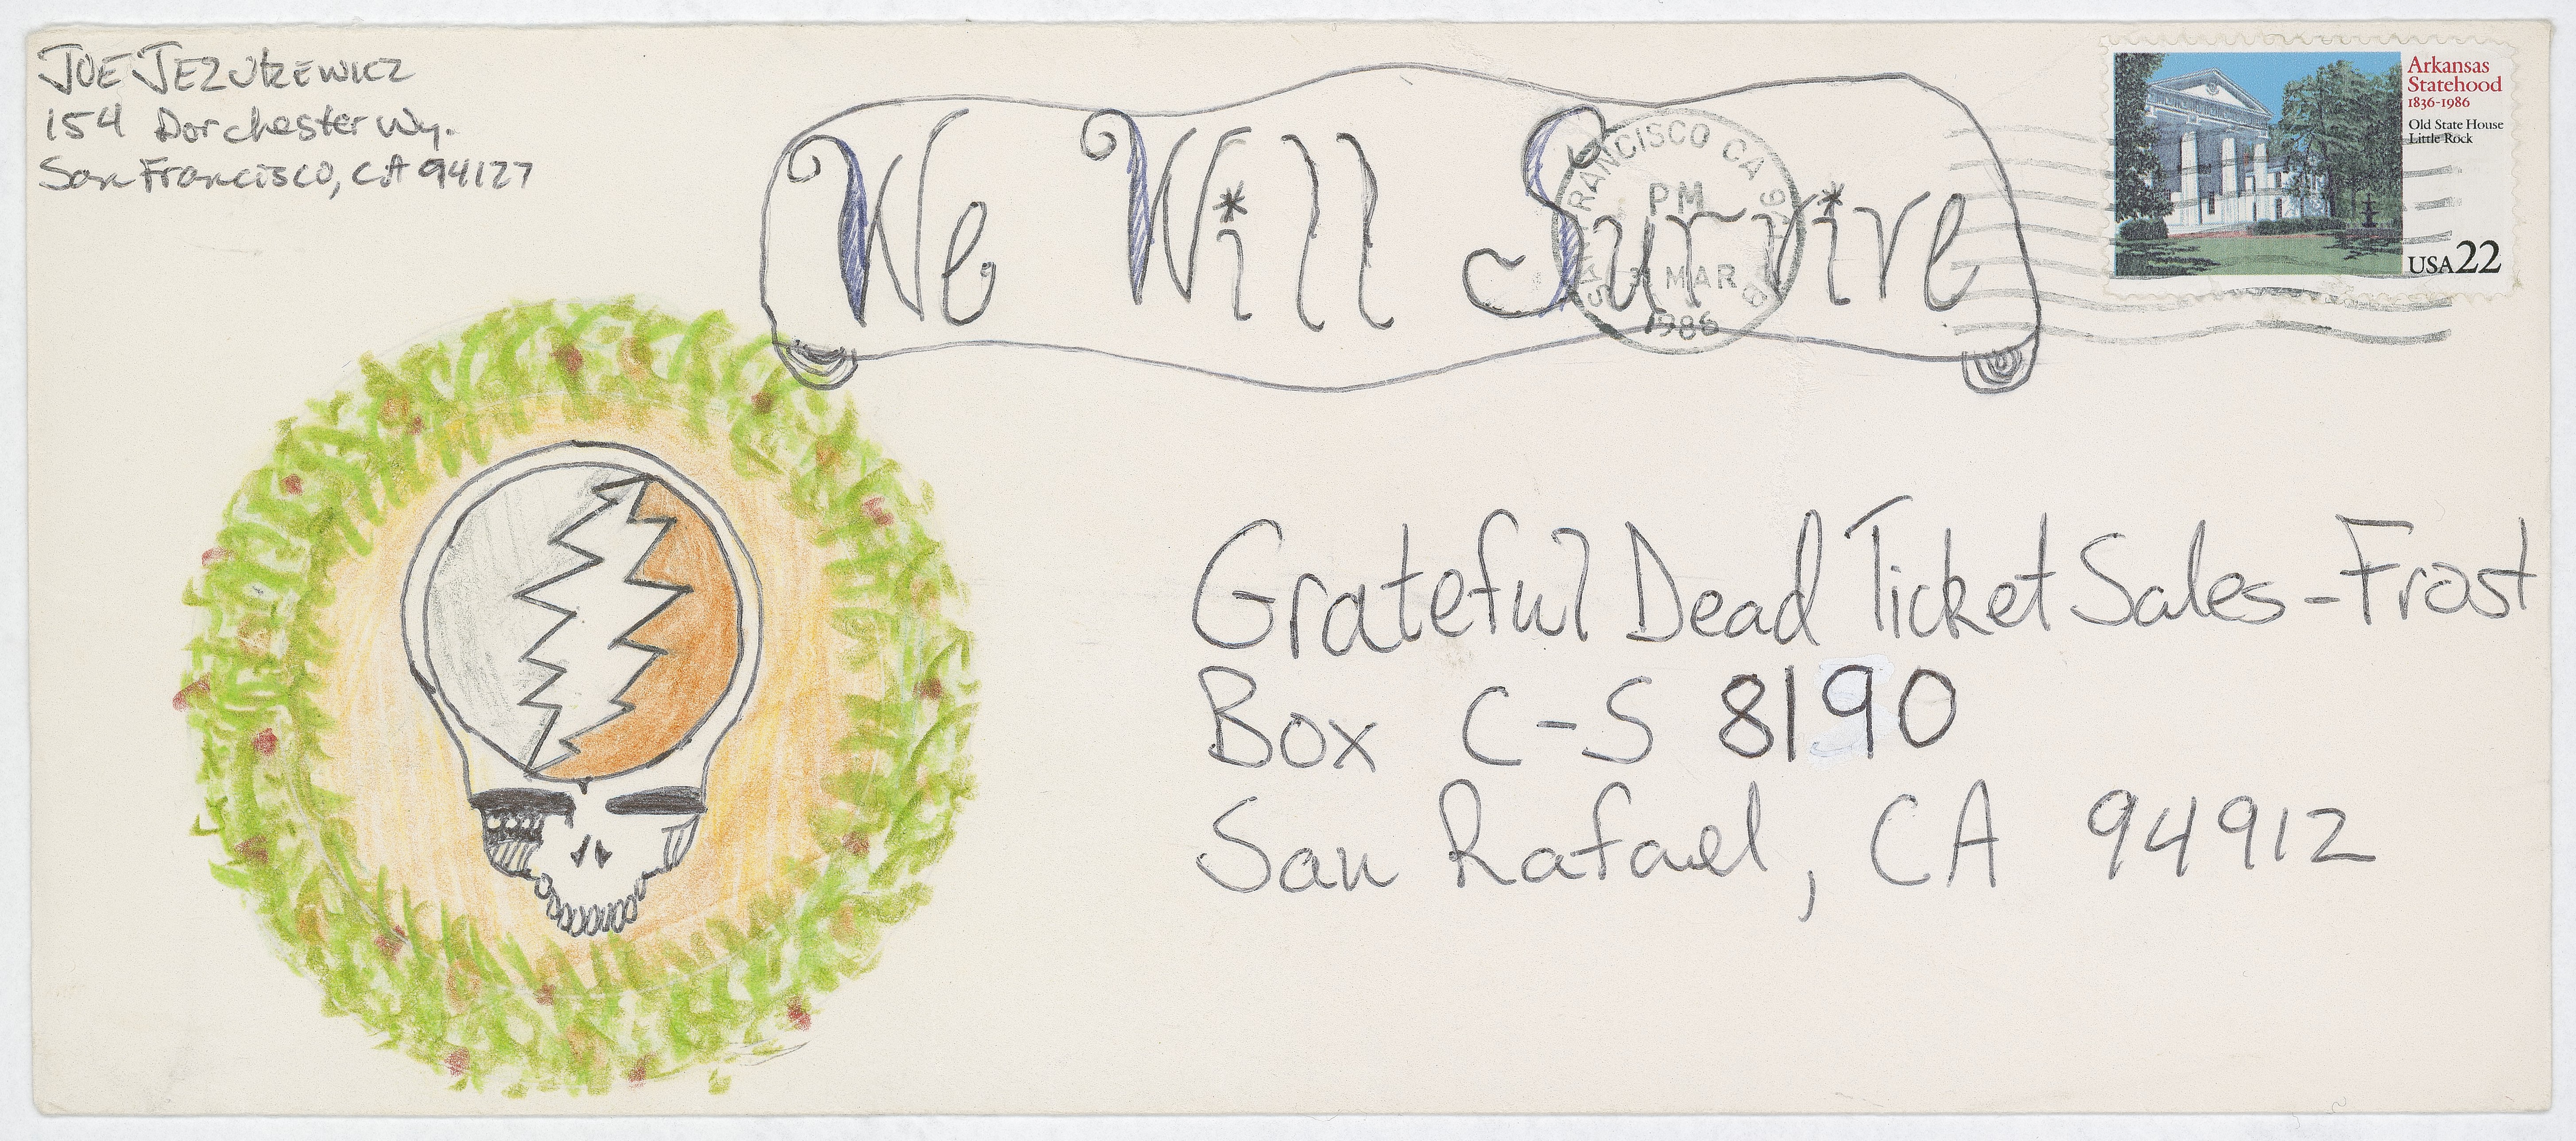 JOE JEZUKEWICZ
154 Dorchester Wy.
San Francisco, CA 94127
We Will Survive
SAN FRANCISCO CA
PM
31 MAR
1986
Arkansas
Statehood
1836-1986
Old State House
Little Rock
USA 22
Grateful Dead Ticket Sales-Frost
Box C-S 8190
San Rafael, CA 94912